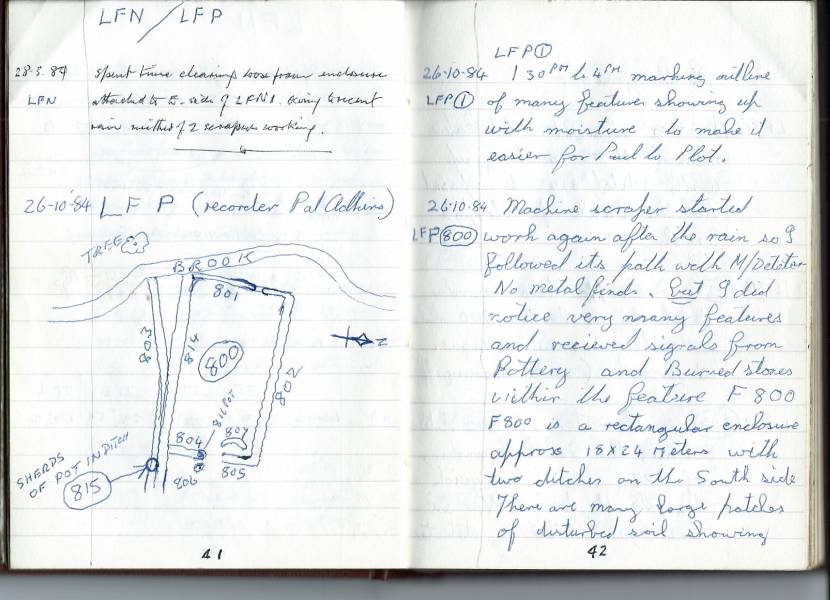 LFN / LFP
28·3·84 Spent time cleaning loose from enclosure
LFN attached to E. side of LFN1. Owing to recent
rain neither of 2 scrapers working.
26-10-84 LFP (recorder Pat Adkins)
TREE
BROOK
801
803
814
800
802
N
816 POT
804
807
806
805
SHERDS
OF POT IN DITCH
815
41
LFP ①
26-10-84 1 30 PM to 4 PM marking outline
LFP ① of many features showing up
with moisture to make it
easier for Paul to Plot.
26·10·84 Machine scraper started
LFP 800 work again after the rain so I
followed its path with M/Detetor
No metal finds. But I did
notice very many features
and recieved signals from
Pottery and Burned stones
within the feature F 800
F800 is a rectangular enclosure
approx 18 X 24 Meters with
two ditches on the South side
There are many large patches
of disturbed soil showing
42